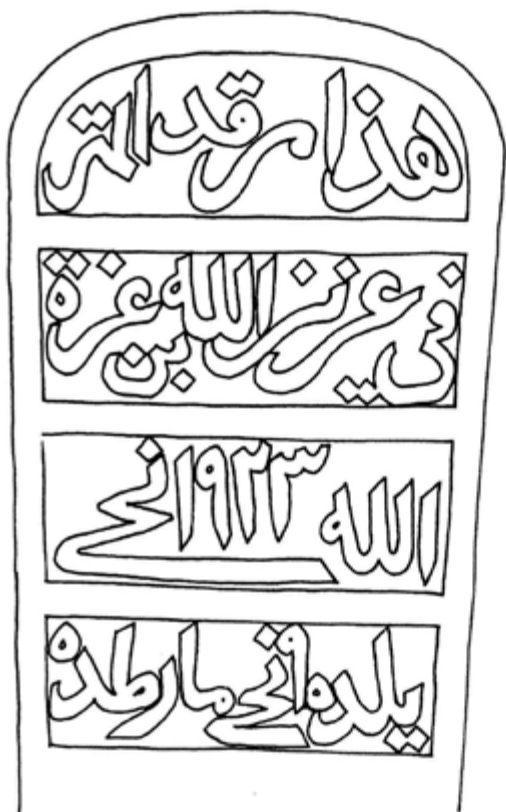 هذا مرقد المتر
في عزيز الله بن عزة
الله ١٩٢٣ نجي
يلده ٩ نجي مارطده